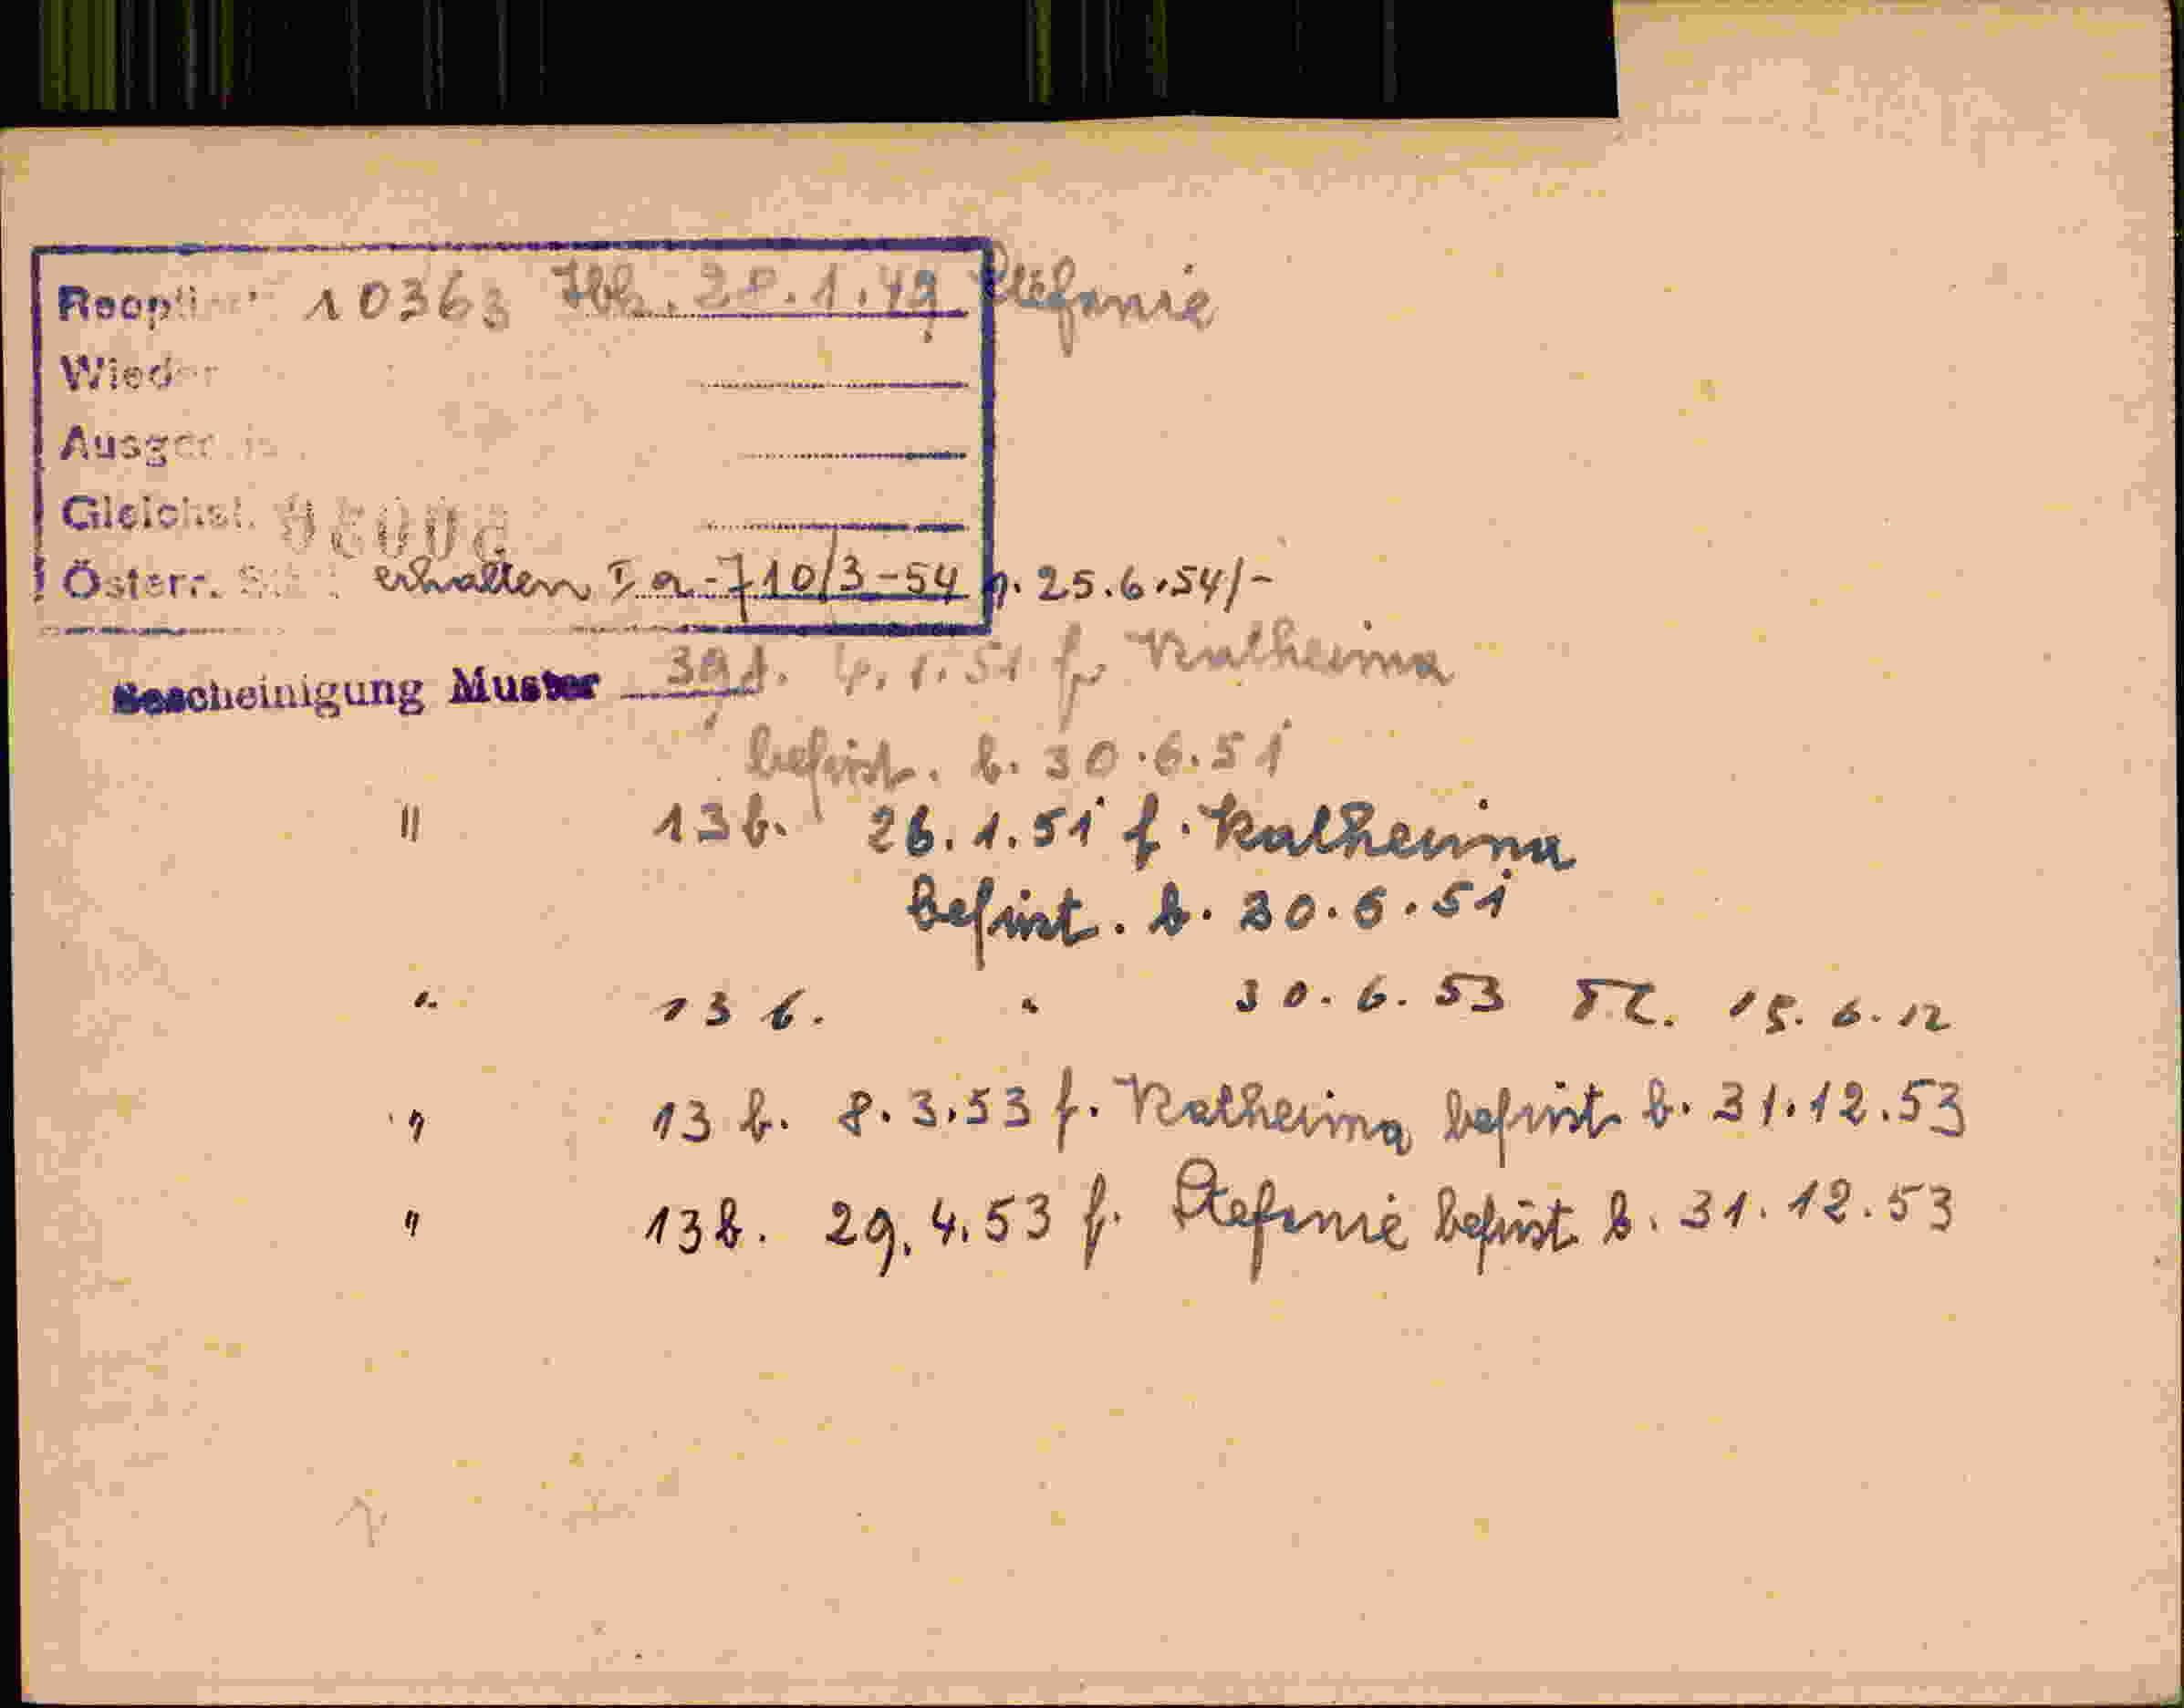 10363 Ibk. 28.1.49 Stefanie
Wieder
Gleichst.
Österr. erhalten I a-710/3-54 v. 25.6.54/-
Bescheinigung Muster 39d. 4.1.51 f. Katherina
befrist. b. 30.6.51
" 13b. 26.1.51 f. Katherina
befrist. b. 30.6.51
" 13b. " 30.6.53
" 13b. 8.3.53 f. Katherina befrist b. 31.12.53
" 13b. 29.4.53 f. Stefanie befrist b. 31.12.53